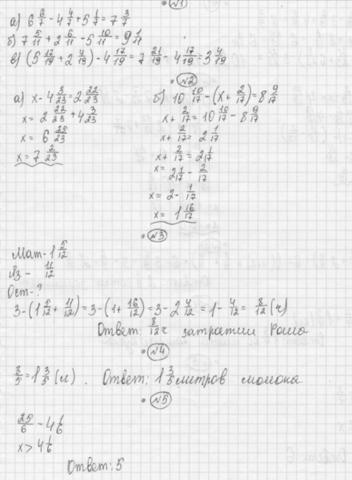 №1
а) 6 6/7 - 4 4/7 + 5 1/7 = 7 3/7
б) 7 5/11 + 2 6/11 - 5 10/11 = 9 1/11
в) (5 17/19 + 2 4/19) - 4 17/19 = 7 21/19 - 4 17/19 = 3 4/19
№2
а) x - 4 3/23 = 2 22/23
x = 2 22/23 + 4 3/23
x = 6 25/23
x = 7 2/23
б) 10 10/17 - (x + 2/17) = 8 9/17
x + 2/17 = 10 10/17 - 8 9/17
x + 2/17 = 2 1/17
x + 2/17 = 2 1/17
x = 2 1/17 - 2/17
x = 2 - 1/17
x = 1 16/17
№3
Мат - 1 5/12
Яз - 11/12
Ост - ?
3 - (1 5/12 + 11/12) = 3 - (1 + 16/12) = 3 - 2 4/12 = 1 - 4/12 = 8/12 (ч)
Ответ: 8/12 ч затратил
№4
8/5 = 1 3/5 (м). Ответ: 1 3/5 метров
№5
25/6 - 4 1/6
x > 4 1/6
Ответ: 5